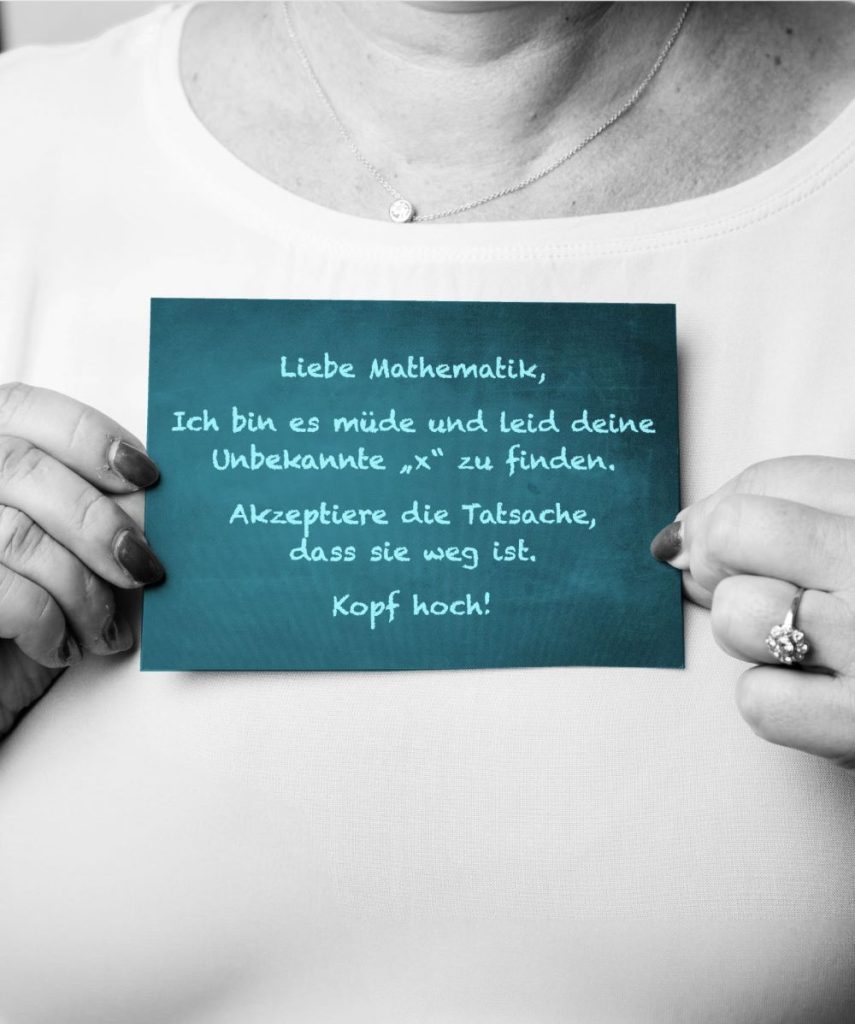 Liebe Mathematik,
Ich bin es müde und leid deine
Unbekannte „x“ zu finden.
Akzeptiere die Tatsache,
dass sie weg ist.
Kopf hoch!